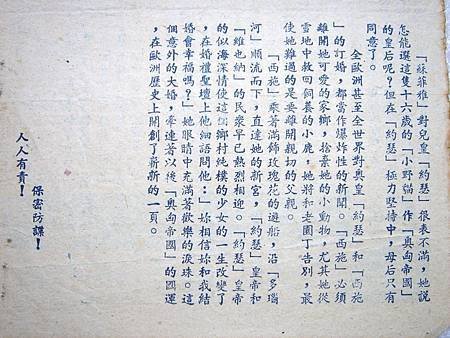 「蘇菲雅」對兒皇「約瑟」很表不滿，她說
怎能選這隻十六歲的「小野貓」作「奧匈帝國」
的皇后呢？但在「約瑟」極力堅持中，母后只有
同意了。
全歐洲甚至全世界對奧皇「約瑟」和「西施
」的訂婚，都當作爆炸性的新聞。「西施」必須
離開她可愛的家鄉，捨棄她的小動物，尤其她從
雪地中救回飼養的小鹿，她將和老園丁告別，最
使她難過的是要離開親切的父親。
「西施」乘著滿飾玫瑰花的遊船，沿「多瑙
河」順流而下，直達她的新宮，「約瑟」皇帝和
「維也納」的民衆早已熱烈相迎。「約瑟」皇帝
的似海深情使這個鄉村純樸的少女的一生改變了
，在婚禮聖壇上他細語問他：「妳相信妳和我結
婚會幸福嗎？」她眼睛中充滿著歡樂的淚珠。這
個意外的大婚，牽連著以後「奧匈帝國」的國運
，在歐洲歷史上開創了嶄新的一頁。
保密防諜！
人人有責！